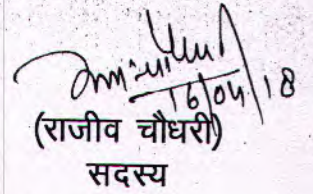 16/04/18
(राजीव चौधरी)
सदस्य